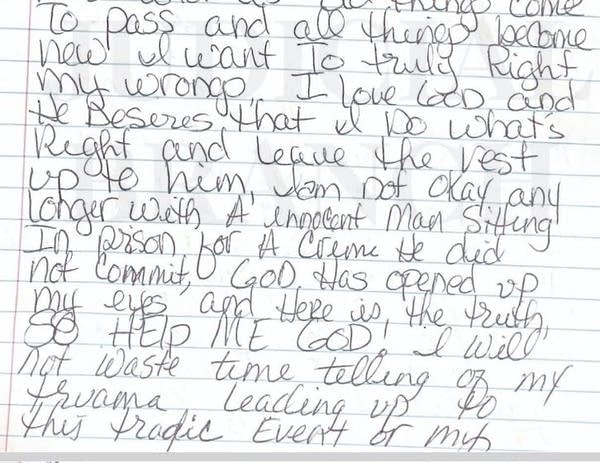 things come
To pass and all things become
new I want To truly Right
my wrongs I love GOD and
He Deseres that I Do what's
Right and leave the rest
up to him, I am not okay any
longer with A innocent Man Sitting
In prison for A Crime He did
not Commit, GOD Has opened up
my eyes and Here is, the truth,
SO HELP ME GOD, I will
not waste time telling of my
truama Leading up to
this tragic Event or my
JUDICIAL
BRANCH